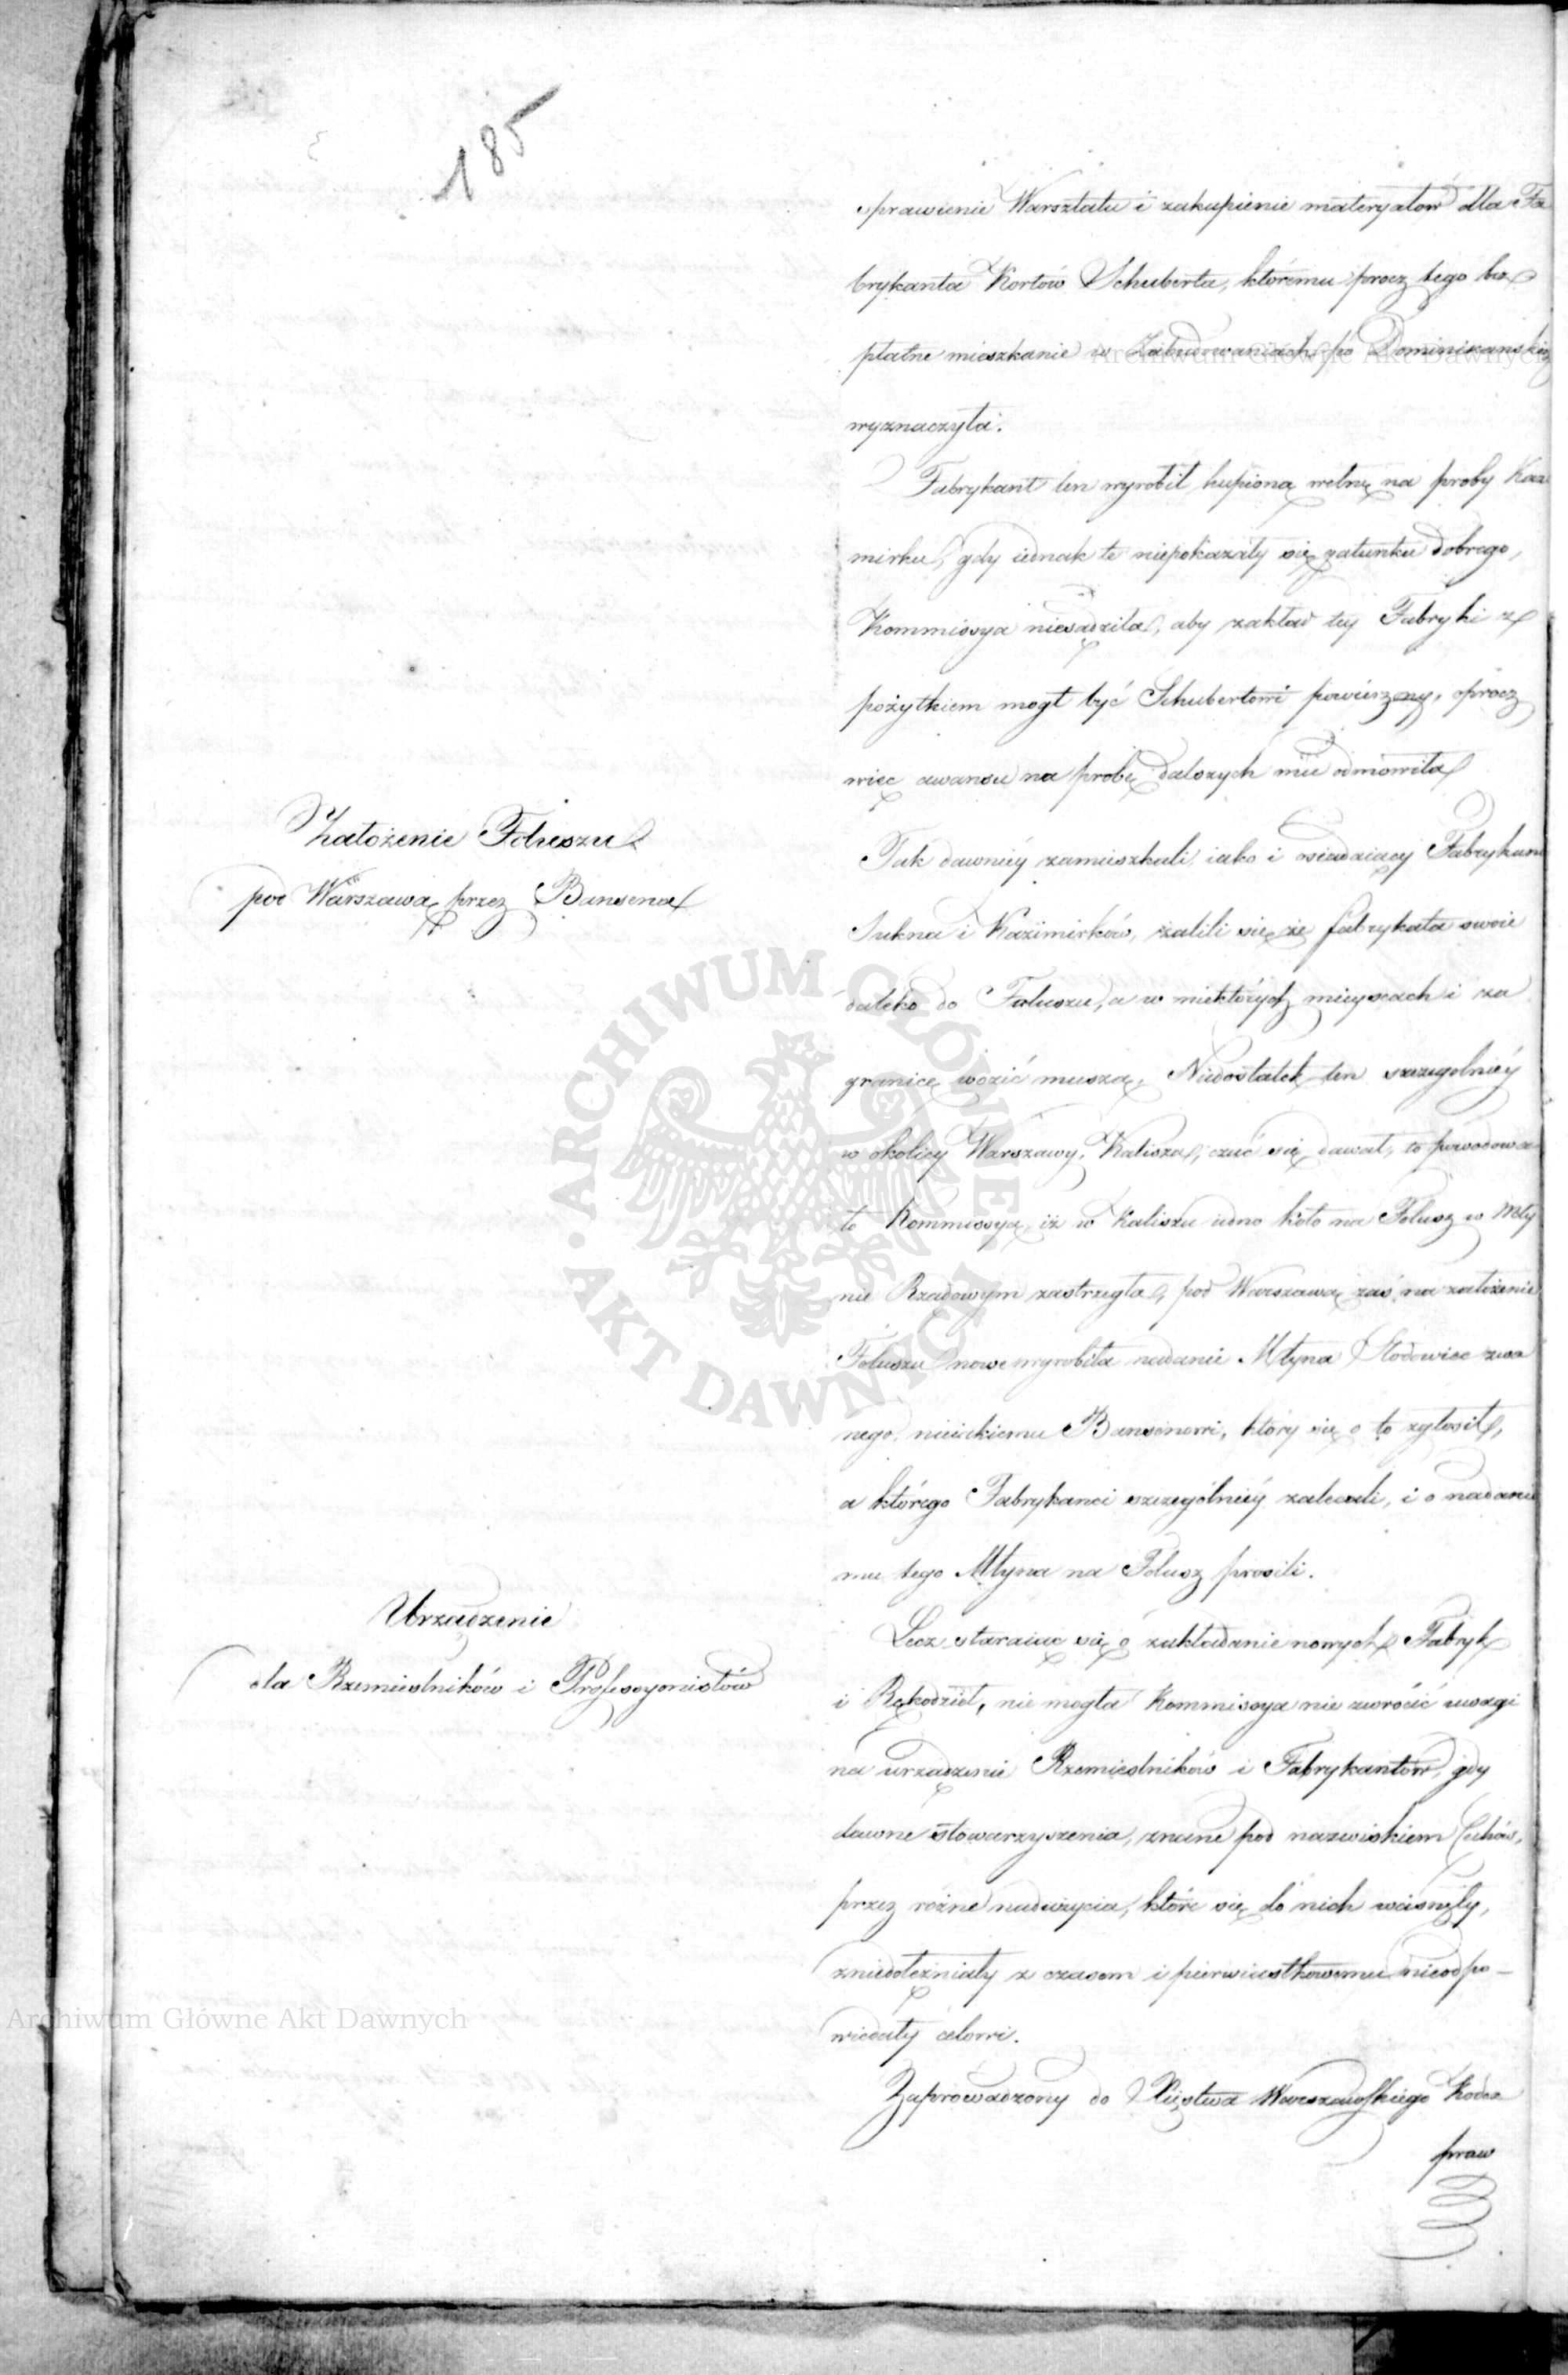 185
sprawienie Warsztatu i zakupienie materyałow dla Fa
brykanta Kortów Schuberta, któremu procz tego bez
płatne mieszkanie w Zabudowaniach po Dominikanskich
wyznaczyła.
Fabrykant ten wyrobił kupioną wełnę na proby Kazi
mirku, gdy iednak te niepokazały się gatunku dobrego,
Kommissya niesądziła, aby zakład tey Fabryki z
pożytkiem mogł być Schubertowi powierzony, oprocz
więc awansu na probę dalszych mu odmowiła
Założenie Foluszu
pod Warszawą przez Bansena
Tak dawniéy zamieszkali iako i osiadaiący Fabrykanci
Sukna i Kazimirków, żalili się że fabrykata swoie
daleko do Foluszu, a w niektórych mieyscach i za
granicę wozić muszą. Niedostatek ten szczególniéy
w okolicy Warszawy, Kalisza, czuć się dawał, to powodowa-
ło Kommissyą iż w Kaliszu iedno koło na Folusz w Mły
nie Rządowym zastrzegła, pod Warszawą zaś na założenie
Foluszu nowe wyrobiła nadanie Młyna Słodowiec zwa
nego, nieiakiemu Bansenowi, który się o to zgłosił,
a którego Fabrykanci szczególniéy zalecali, i o nadanie
mu tego Młyna na Folusz prosili.
Urządzenie
dla Rzemieslników i Professyonistów
Lecz staraiąc się o zakładanie nowych Fabryk
i Rękodzieł, nie mogła Kommissya nie zwrócić uwagi
na urządzenie Rzemieslników i Fabrykantów, gdy
dawne stowarzyszenia, znane pod nazwiskiem Cechów,
przez różne nadużycia, które się do nich wcisnęły,
zniedołężniały z czasem i pierwiastkowemu nieodpo-
wiedały celowi.
Zaprowadzony do Xięstwa Warszawskiego Kodex
praw
Archiwum Główne Akt Dawnych
ARCHIWUM GŁÓWNE AKT DAWNYCH
Archiwum Główne Akt Dawnych